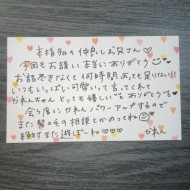 本指名の仲良しお兄さん♡♡
今回もお誘い本当にありがとう
お話尽きなくて何時間あっても足りない!!
いつもいっぱい可愛いって言ってくれて
かれんちゃん とっても嬉しい♡ ありがとう♡
会う度に かれん パワーアップするので
また の相撲とかのってね
絶対また遊ぼーね♡♡♡
かれん